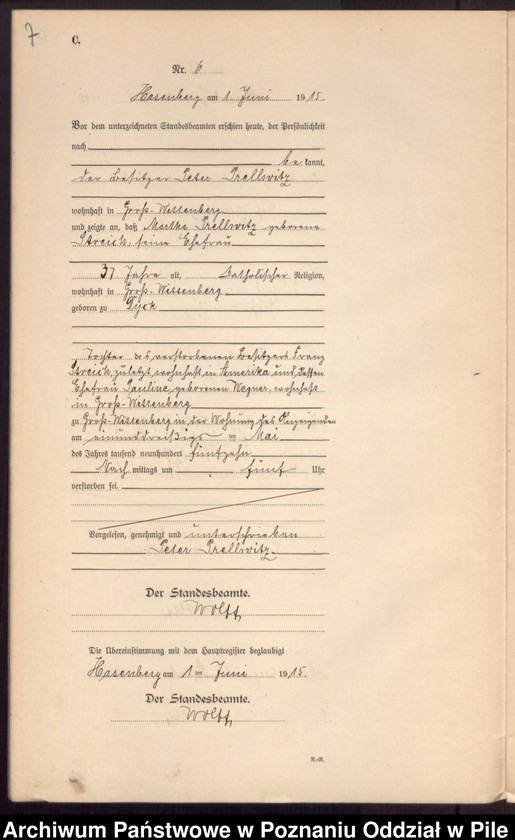 7
C.
Nr. 6
Hasenberg am 1. Juni 1915.
Vor dem unterzeichneten Standesbeamten erschien heute, der Persönlichkeit
nach
bekannt,
der Besitzer Peter Prellwitz
wohnhaft in Groß-Wittenberg
und zeigte an, daß Martha Prellwitz geborene
Streich, seine Ehefrau
37 Jahre alt, katholischer Religion,
wohnhaft in Groß-Wittenberg
geboren zu Dyck
Tochter des verstorbenen Besitzers Franz
Streich, zuletzt wohnhaft in Amerika und dessen
Ehefrau Pauline, geborenen Wegner, wohnhaft
in Groß-Wittenberg
zu Groß-Wittenberg in der Wohnung des Anzeigenden
am einunddreißigs ten Mai
des Jahres tausend neunhundert fünfzehn
Nach mittags um fünf Uhr
verstorben sei.
Vorgelesen, genehmigt und unterschrieben
Peter Prellwitz
Der Standesbeamte.
Wolff
Die Übereinstimmung mit dem Hauptregister beglaubigt
Hasenberg am 1 ten Juni 1915.
Der Standesbeamte.
Wolff
R.-R.
Archiwum Państwowe w Poznaniu Oddział w Pile